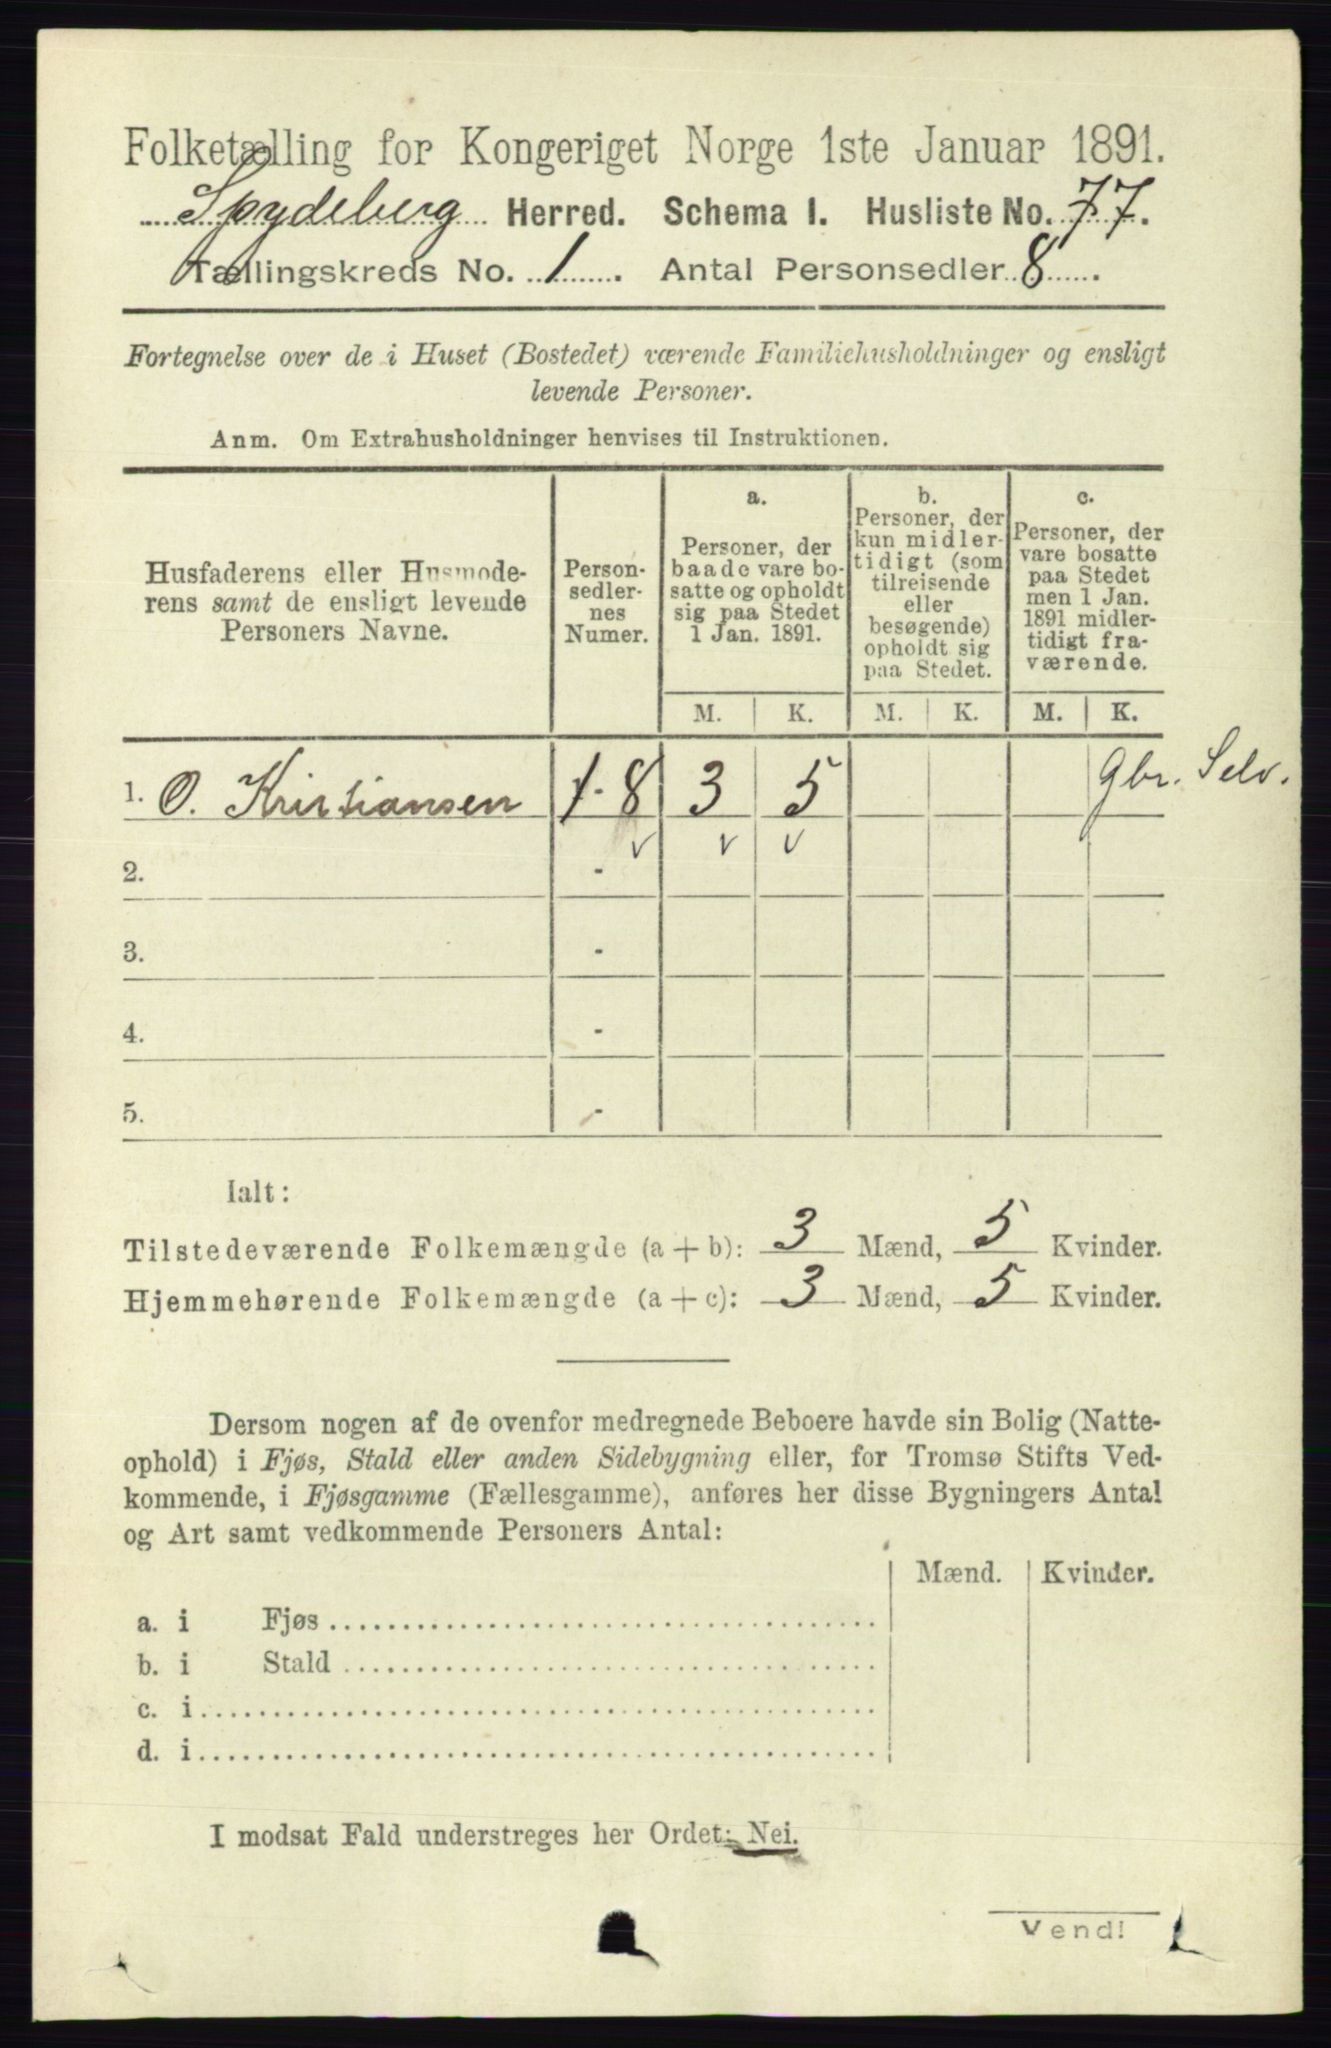 Folketælling for Kongeriget Norge 1ste Januar 1891.
Spydeberg Herred. Schema I. Husliste No. 77.
Tællingskreds No. 1. Antal Personsedler 8.
Fortegnelse over de i Huset (Bostedet) værende Familiehusholdninger og ensligt
levende Personer.
Anm. Om Extrahusholdninger henvises til Instruktionen.
Husfaderens eller Husmode-
rens samt de ensligt levende
Personers Navne.
Person-
sedler-
nes
Numer.
a.
Personer, der
baade vare bo-
satte og opholdt
sig paa Stedet
1 Jan. 1891.
b.
Personer, der
kun midler-
tidigt (som
tilreisende
eller
besøgende)
opholdt sig
paa Stedet.
c.
Personer, der
vare bosatte
paa Stedet
men 1 Jan.
1891 midler-
tidigt fra-
værende.
M. K. M. K. M. K.
1. O. Kristiansen 1-8 3 5 Gbr. Selv.
v v v
2. -
3. -
4. -
5. -
Ialt:
Tilstedeværende Folkemængde (a + b): 3 Mænd, 5 Kvinder.
Hjemmehørende Folkemængde (a + c): 3 Mænd, 5 Kvinder.
Dersom nogen af de ovenfor medregnede Beboere havde sin Bolig (Natte-
ophold) i Fjøs, Stald eller anden Sidebygning eller, for Tromsø Stifts Ved-
kommende, i Fjøsgamme (Fællesgamme), anføres her disse Bygningers Antal
og Art samt vedkommende Personers Antal:
Mænd. Kvinder.
a. i Fjøs
b. i Stald
c. i
d. i
I modsat Fald understreges her Ordet: Nei.
Vend!